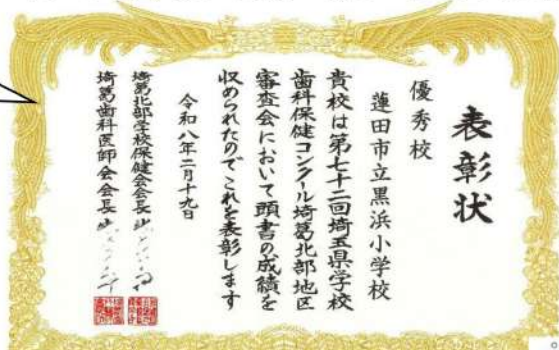 表彰状
優秀校
蓮田市立黒浜小学校
貴校は第七十二回埼玉県学校
歯科保健コンクール埼葛北部地区
審査会において頭書の成績を
収められたのでこれを表彰します
令和八年二月十九日
埼葛北部学校保健会会長
埼葛歯科医師会会長